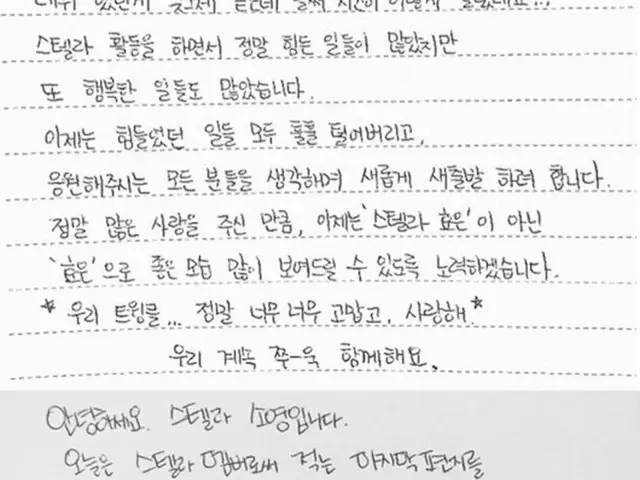 스텔라 활동을 하면서 정말 힘든 일들이 많았지만
또 행복한 일들도 많았습니다.
이제는 힘들었던 일들 모두 훌훌 털어버리고,
응원해주시는 모든 분들을 생각하며 새롭게 새출발 하려 합니다.
정말 많은 사랑을 주신 만큼, 이제는 '스텔라 효은'이 아닌
'효은'으로 좋은 모습 많이 보여드릴 수 있도록 노력하겠습니다.
*우리 트윙클... 정말 너무너무 고맙고, 사랑해*
우리 계속 쭈-욱 함께해요.
안녕하세요. 스텔라 소영입니다.
오늘은 스텔라 멤버로써 적는 마지막 편지를